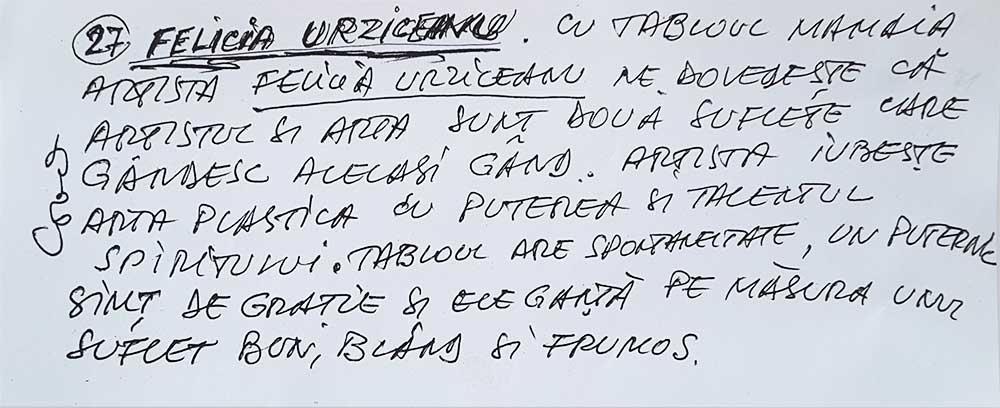 27 FELICIA URZICEANU. CU TABLOUL MAMAIA
ARTISTA FELICIA URZICEANU NE DOVEDEȘTE CĂ
ARTISTUL SI ARTA SUNT DOUĂ SUFLEȚE CARE
GÂNDESC ACELASI GÂND. ARTISTA IUBEȘTE
ARTA PLASTICA CU PUTEREA SI TALENTUL
SPIRITULUI. TABLOUL ARE SPONTANEITATE, UN PUTERNIC
SIMȚ DE GRATIE SI ELEGANȚĂ PE MĂSURA UNUI
SUFLET BUN, BLÂND SI FRUMOS.